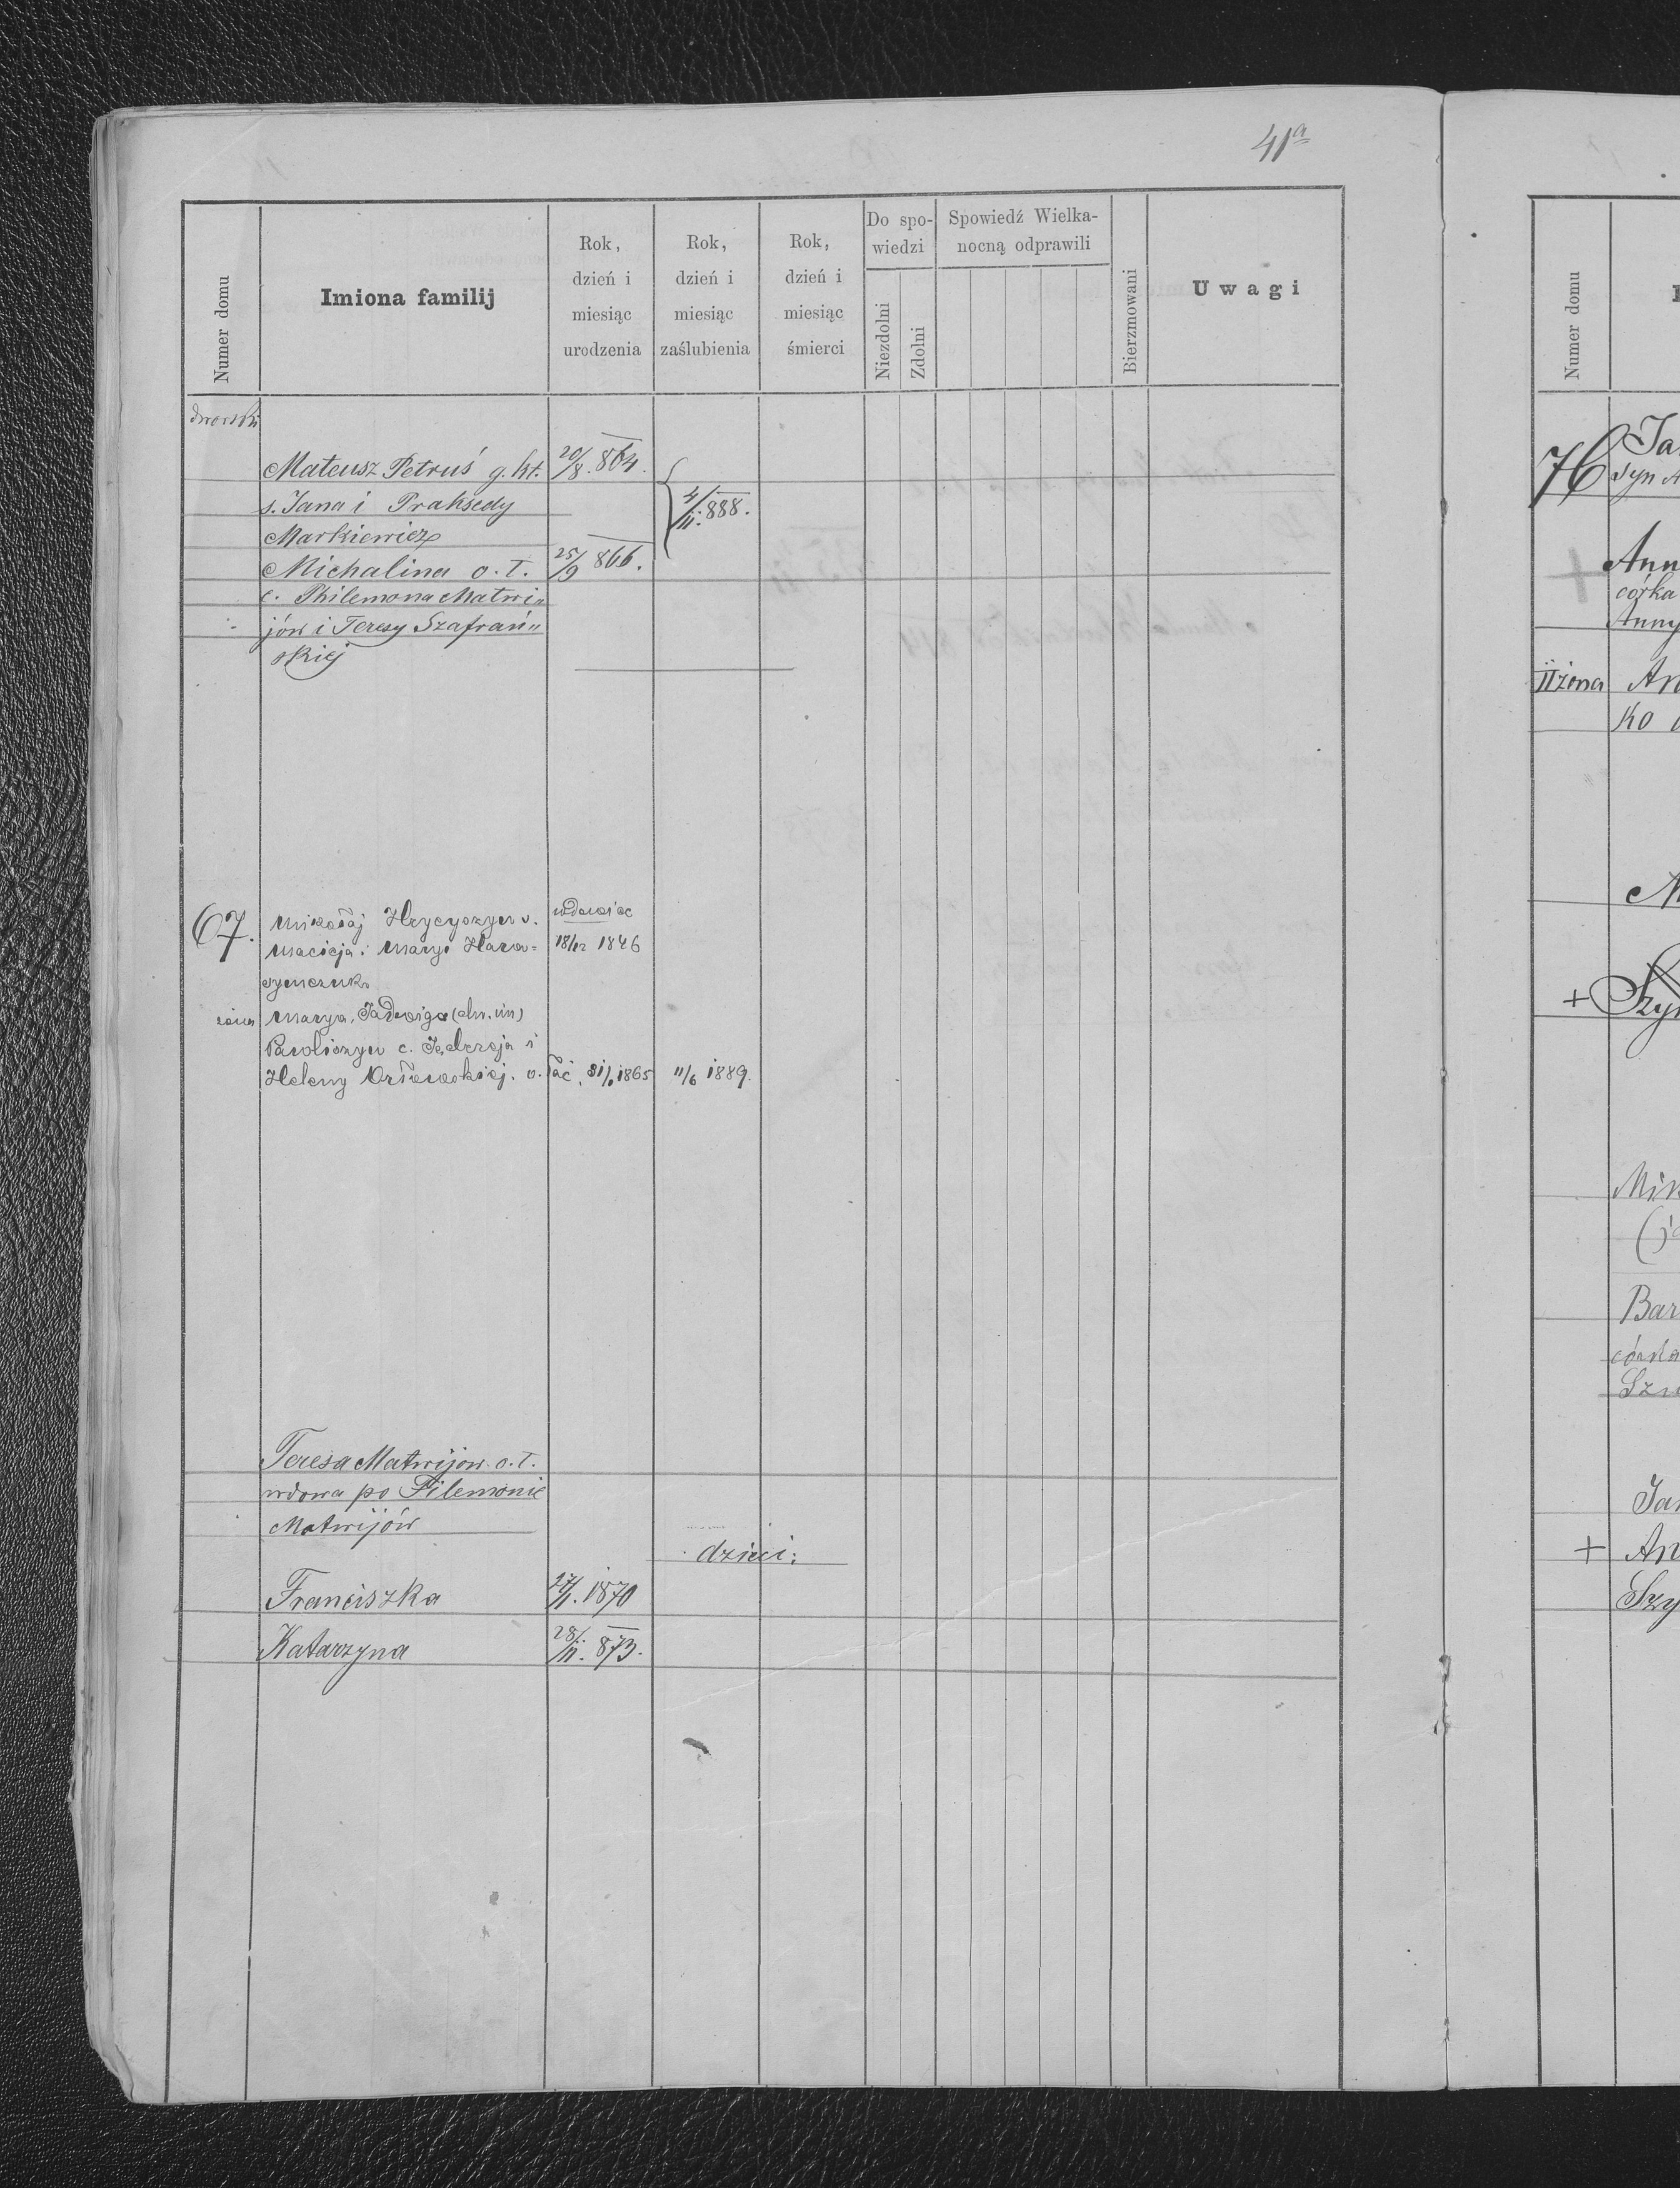 41a
Numer domu
Imiona familij
Rok, dzień i miesiąc urodzenia
Rok, dzień i miesiąc zaślubienia
Rok, dzień i miesiąc śmierci
Do spowiedzi
Niezdolni
Zdolni
Spowiedź Wielkanocną odprawili
Bierzmowani
Uwagi
dworski
Mateusz Petruś g. kt. 20/8. 864.
s. Jana i Praksedy 4/II. 888.
Markiewicz
Michalina o. ł. 25/9 866.
c. Philemona Matwi„
jów i Teresy Szafrań„
skiej
67. Mikołaj Hrycyszyn s. wdowiec
Macieja i Maryi Hara= 18/12 1846
symczuk
żona Marya, Jadwiga (dw. im)
Pawliszyn c. Jędrzeja i
Heleny Orłowskiej. o. łać. 31/1 1865 11/6 1889.
Teresa Matwijow o. ł.
wdowa po Filemonie
Matwijów
dzieci:
Franciszka 27/1. 1870
Katarzyna 28/II. 873.
Numer domu
76 Ja
syn
Ann
córka
Anny
II żona An
ko
Szy
Mik
Bar
córka
Jan
+ An
Szy